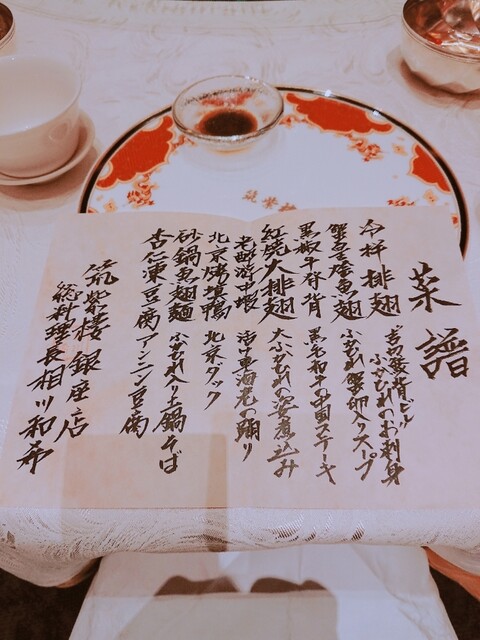 菜譜
冷拌排翅 ふかひれのお刺身
蟹皇燴魚翅 ふかひれ蟹卵入りスープ
黒椒牛脊背 黒毛和牛の国ステーキ
紅焼大排翅 大ふかひれの姿煮込み
老醉游中蝦 活け車海老の踊り
北京烤填鴨 北京ダック
砂鍋魚翅麺 ふかひれ入り土鍋そば
杏仁凍豆腐 アンニン豆腐
筑紫楼 銀座店
総料理長 相川和希